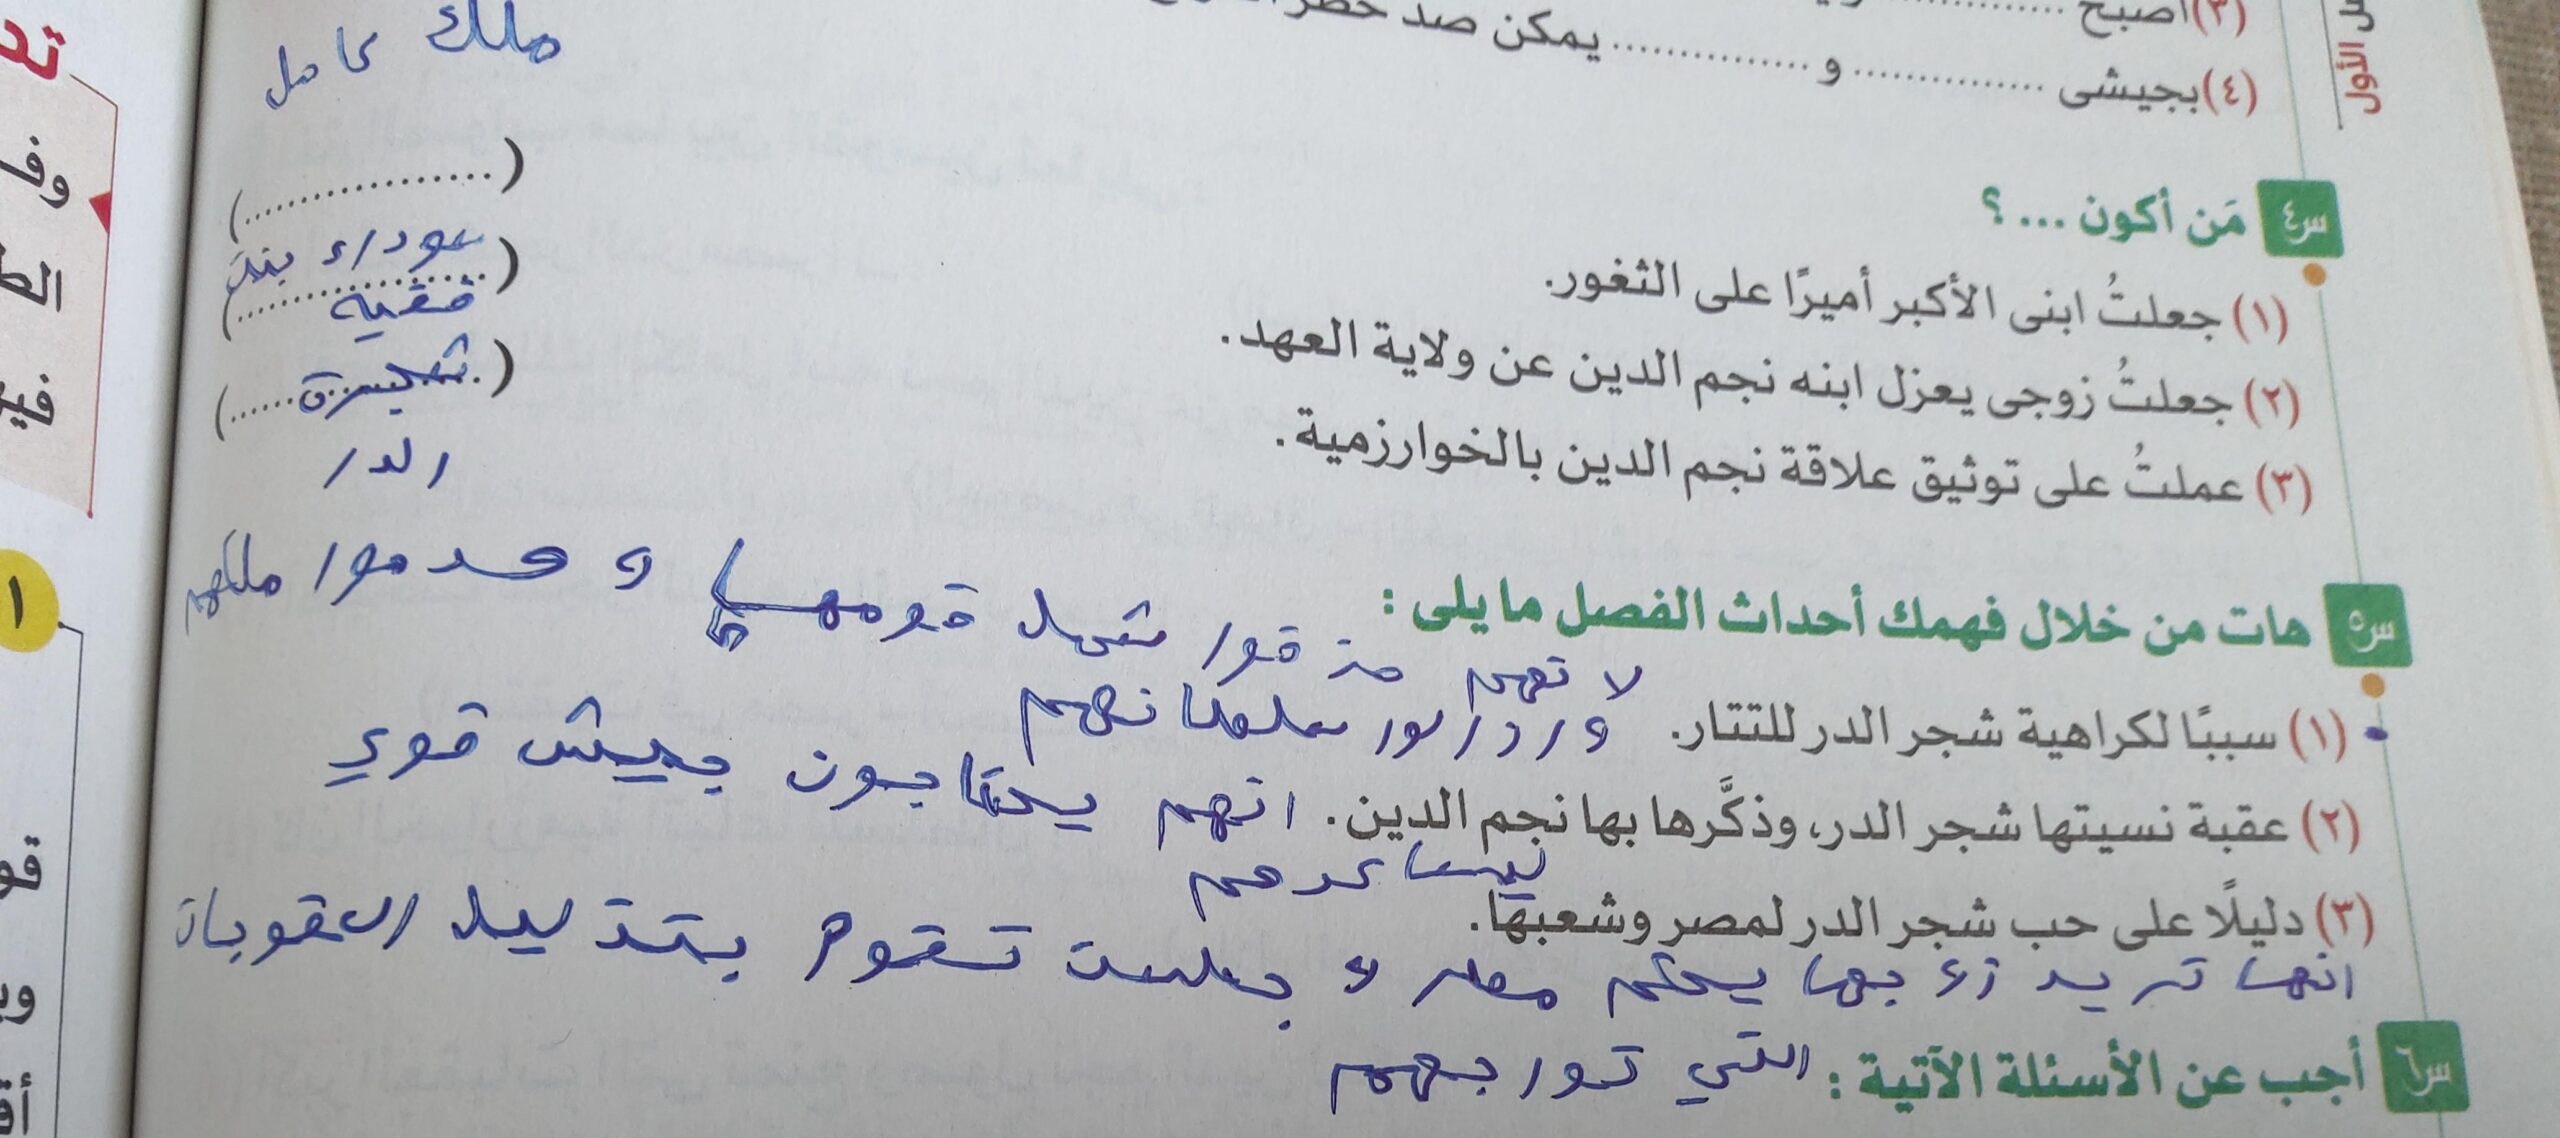 (٣) أصبح
(٤) بجيشى .................. و .................. يمكن صد خطر
الأول
ملك كامل
س٤ مَن أكون ... ؟
(١) جعلتُ ابنى الأكبر أميرًا على الثغور. (..................)
(٢) جعلتُ زوجى يعزل ابنه نجم الدين عن ولاية العهد. (..................)
سوداء بنت فقيه
(٣) عملتُ على توثيق علاقة نجم الدين بالخوارزمية. (..................)
شجرة الدر
س٥ هات من خلال فهمك أحداث الفصل ما يلى :
لا نهم مزقوا شمل قومها و هدموا ملكهم
(١) سببًا لكراهية شجر الدر للتتار.
سلطانهم
(٢) عقبة نسيتها شجر الدر، وذكَّرها بها نجم الدين. انهم يحتاجون جيش قوي
ليساعدهم
(٣) دليلًا على حب شجر الدر لمصر وشعبها.
انها تريد زوجها يحكم مصر و جلست تقوم بتذليل العقوبات
التي تورجهم
س٦ أجب عن الأسئلة الآتية :
وف
١
قو